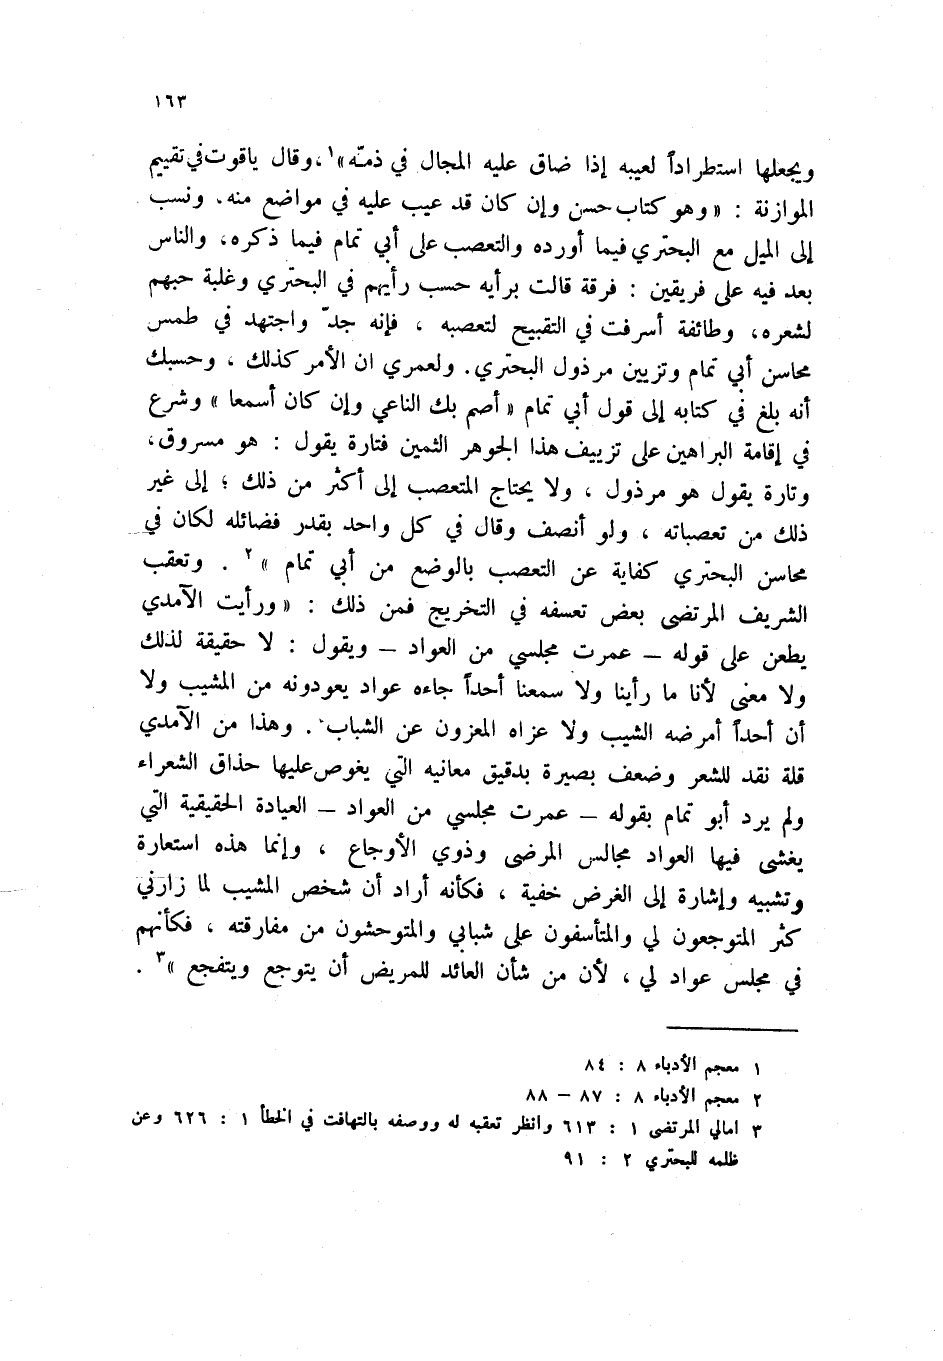 ١٦٣
ويجعلها استطراداً لعيبه إذا ضاق عليه المجال في ذمّه»١، وقال ياقوت في تقييم
الموازنة : «وهو كتاب حسن وإن كان قد عيب عليه في مواضع منه. ونسب
إلى الميل مع البحتري فيما أورده والتعصب على أبي تمام فيما ذكره، والناس
بعد فيه على فريقين : فرقة قالت برأيه حسب رأيهم في البحتري وغلبة حبهم
لشعره، وطائفة أسرفت في التقبيح لتعصبه ، فإنه جدّ واجتهد في طمس
محاسن أبي تمام وتزيين مرذول البحتري. ولعمري ان الأمر كذلك ، وحسبك
أنه بلغ في كتابه إلى قول أبي تمام «أصم بك الناعي وإن كان أسمعا» وشرع
في إقامة البراهين على تزييف هذا الجوهر الثمين فتارة يقول : هو مسروق،
وتارة يقول هو مرذول ، ولا يحتاج المتعصب إلى أكثر من ذلك ؛ إلى غير
ذلك من تعصباته ، ولو أنصف وقال في كل واحد بقدر فضائله لكان في
محاسن البحتري كفاية عن التعصب بالوضع من أبي تمام »٢ . وتعقب
الشريف المرتضى بعض تعسفه في التخريج فمن ذلك : «ورأيت الآمدي
يطعن على قوله – عمرت مجلسي من العواد – ويقول : لا حقيقة لذلك
ولا معنى لأنا ما رأينا ولا سمعنا أحداً جاءه عواد يعودونه من المشيب ولا
أن أحداً أمرضه الشيب ولا عزاه المعزون عن الشباب . وهذا من الآمدي
قلة نقد للشعر وضعف بصيرة بدقيق معانيه التي يغوص عليها حذاق الشعراء
ولم يرد أبو تمام بقوله – عمرت مجلسي من العواد – العيادة الحقيقية التي
يغشى فيها العواد مجالس المرضى وذوي الأوجاع ، وإنما هذه استعارة
وتشبيه وإشارة إلى الغرض خفية ، فكأنه أراد أن شخص المشيب لما زارني
كثر المتوجعون لي والمتأسفون على شبابي والمتوحشون من مفارقته ، فكأنهم
في مجلس عواد لي ، لأن من شأن العائد للمريض أن يتوجع ويتفجع »٣ .
١ معجم الأدباء ٨ : ٨٤
٢ معجم الأدباء ٨ : ٨٧ – ٨٨
٣ امالي المرتضى ١ : ٦١٣ وانظر تعقبه له ووصفه بالتهافت في الخطأ ١ : ٦٢٦ وعن
ظلمه للبحتري ٢ : ٩١